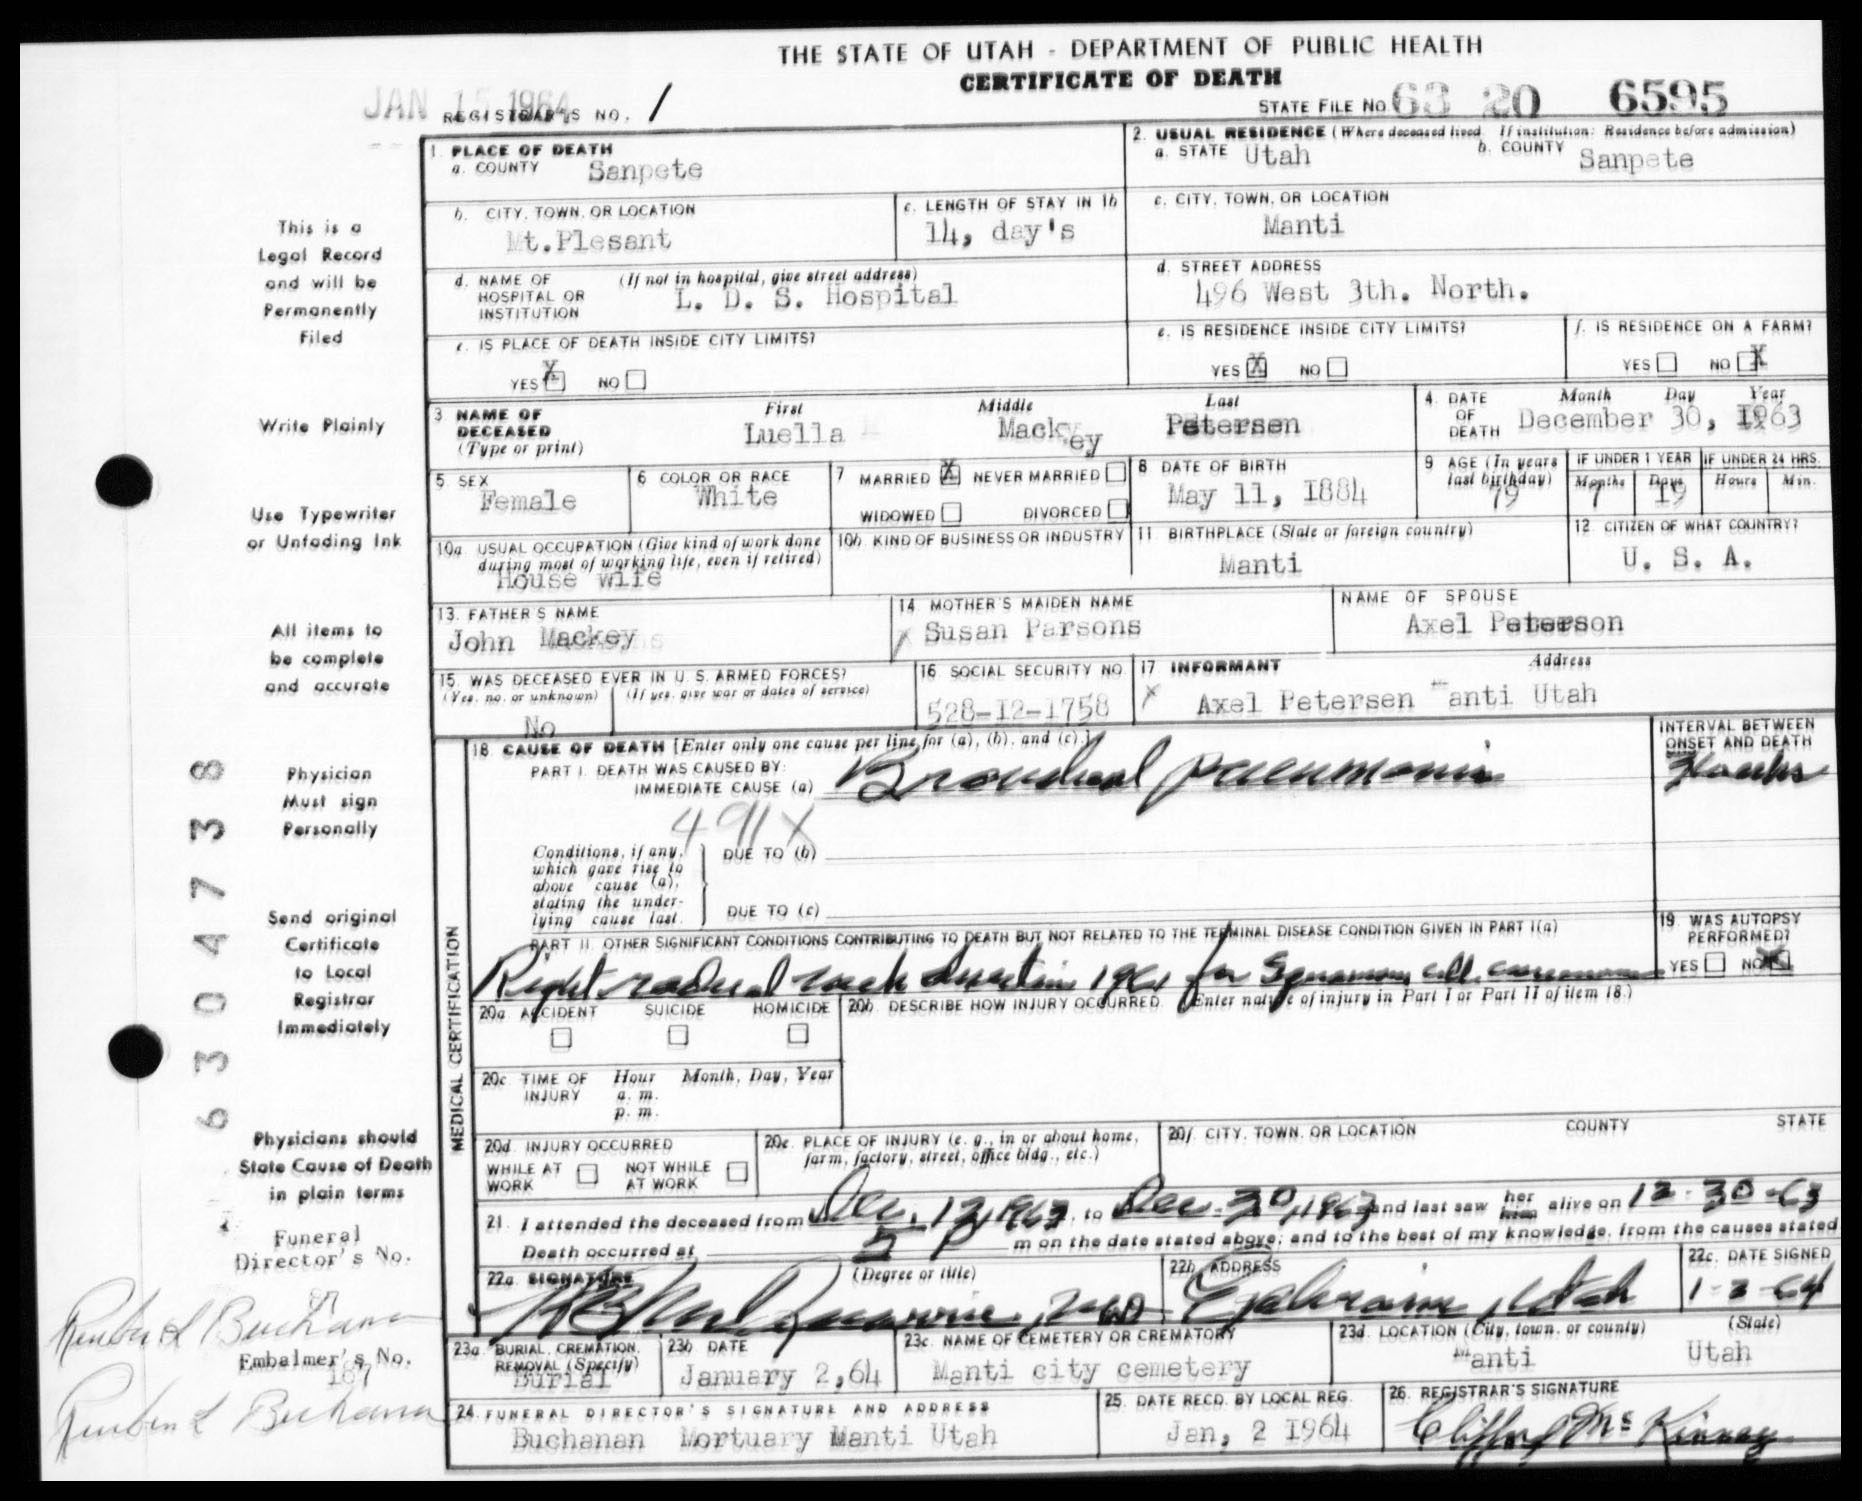 THE STATE OF UTAH - DEPARTMENT OF PUBLIC HEALTH
CERTIFICATE OF DEATH
JAN 15 1964
REGISTRAR'S NO. 1
STATE FILE NO 63 20 6595
1. PLACE OF DEATH
a. COUNTY Sanpete
2. USUAL RESIDENCE (Where deceased lived. If institution: Residence before admission)
a. STATE Utah b. COUNTY Sanpete
b. CITY, TOWN, OR LOCATION
Mt.Plesant
c. LENGTH OF STAY IN 1b
14, day's
c. CITY, TOWN, OR LOCATION
Manti
d. NAME OF HOSPITAL OR INSTITUTION (If not in hospital, give street address)
L. D. S. Hospital
d. STREET ADDRESS
496 West 3th. North.
e. IS PLACE OF DEATH INSIDE CITY LIMITS?
YES X NO
e. IS RESIDENCE INSIDE CITY LIMITS?
YES X NO
f. IS RESIDENCE ON A FARM?
YES NO X
3 NAME OF DECEASED (Type or print)
First Middle Last
Luella Mackey Petersen
4. DATE OF DEATH Month Day Year
December 30, 1963
5. SEX
Female
6 COLOR OR RACE
White
7 MARRIED X NEVER MARRIED
WIDOWED DIVORCED
8 DATE OF BIRTH
May 11, I884
9 AGE (In years last birthday)
79
IF UNDER 1 YEAR
Months Days
7 19
IF UNDER 24 HRS.
Hours Min.
10a. USUAL OCCUPATION (Give kind of work done during most of working life, even if retired)
House wife
10b. KIND OF BUSINESS OR INDUSTRY
11 BIRTHPLACE (State or foreign country)
Manti
12 CITIZEN OF WHAT COUNTRY?
U. S. A.
13. FATHER'S NAME
John Mackey
14 MOTHER'S MAIDEN NAME
Susan Parsons
NAME OF SPOUSE
Axel Peterson
15. WAS DECEASED EVER IN U. S. ARMED FORCES?
(Yes, no, or unknown) (If yes, give war or dates of service)
No
16 SOCIAL SECURITY NO.
528-I2-1758
17 INFORMANT Address
Axel Petersen Manti Utah
18. CAUSE OF DEATH [Enter only one cause per line for (a), (b), and (c).]
PART I. DEATH WAS CAUSED BY:
IMMEDIATE CAUSE (a) Bronchial pneumonia
INTERVAL BETWEEN ONSET AND DEATH
491X
Conditions, if any, which gave rise to above cause (a), stating the underlying cause last.
DUE TO (b)
DUE TO (c)
PART II. OTHER SIGNIFICANT CONDITIONS CONTRIBUTING TO DEATH BUT NOT RELATED TO THE TERMINAL DISEASE CONDITION GIVEN IN PART I(a)
Right radical neck dissection 1961 for Squamous cell carcinoma
19. WAS AUTOPSY PERFORMED?
YES NO X
MEDICAL CERTIFICATION
20a. ACCIDENT SUICIDE HOMICIDE
20b. DESCRIBE HOW INJURY OCCURRED. (Enter nature of injury in Part I or Part II of item 18.)
20c. TIME OF INJURY Hour a. m. p. m. Month, Day, Year
20d. INJURY OCCURRED
WHILE AT WORK NOT WHILE AT WORK
20e. PLACE OF INJURY (e. g., in or about home, farm, factory, street, office bldg., etc.)
20f. CITY, TOWN, OR LOCATION COUNTY STATE
21. I attended the deceased from Dec. 12, 1963, to Dec. 30, 1963 and last saw her him alive on 12-30-63
Death occurred at 5 P m on the date stated above; and to the best of my knowledge, from the causes stated
22a. SIGNATURE (Degree or title)
22b. ADDRESS
Ephraim, Utah
22c. DATE SIGNED
1-2-64
23a. BURIAL, CREMATION, REMOVAL (Specify)
Burial
23b DATE
January 2,64
23c. NAME OF CEMETERY OR CREMATORY
Manti city cemetery
23d. LOCATION (City, town, or county) (State)
Manti Utah
24. FUNERAL DIRECTOR'S SIGNATURE AND ADDRESS
Buchanan Mortuary Manti Utah
25. DATE RECD. BY LOCAL REG.
Jan, 2 I964
26. REGISTRAR'S SIGNATURE
Clifford Mc Kinney
This is a
Legal Record
and will be
Permanently
Filed
Write Plainly
Use Typewriter
or Unfading Ink
All items to
be complete
and accurate
Physician
Must sign
Personally
Send original
Certificate
to Local
Registrar
Immediately
Physicians should
State Cause of Death
in plain terms
Funeral
Director's No.
87
Reuben L Buchanan
Embalmer's No.
167
Reuben L Buchanan
6304738